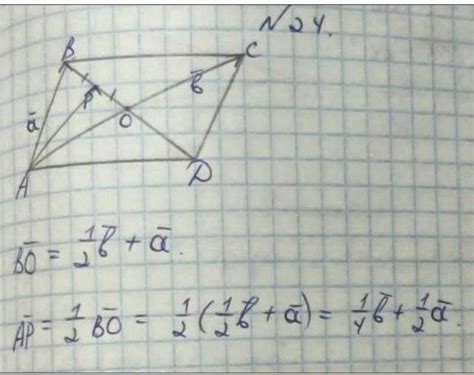 N24.
B
C
P
b̅
a̅
O
A
D
B̅O̅ = 1/2 b̅ + a̅.
A̅P̅ = 1/2 B̅O̅ = 1/2 (1/2 b̅ + a̅) = 1/4 b̅ + 1/2 a̅.